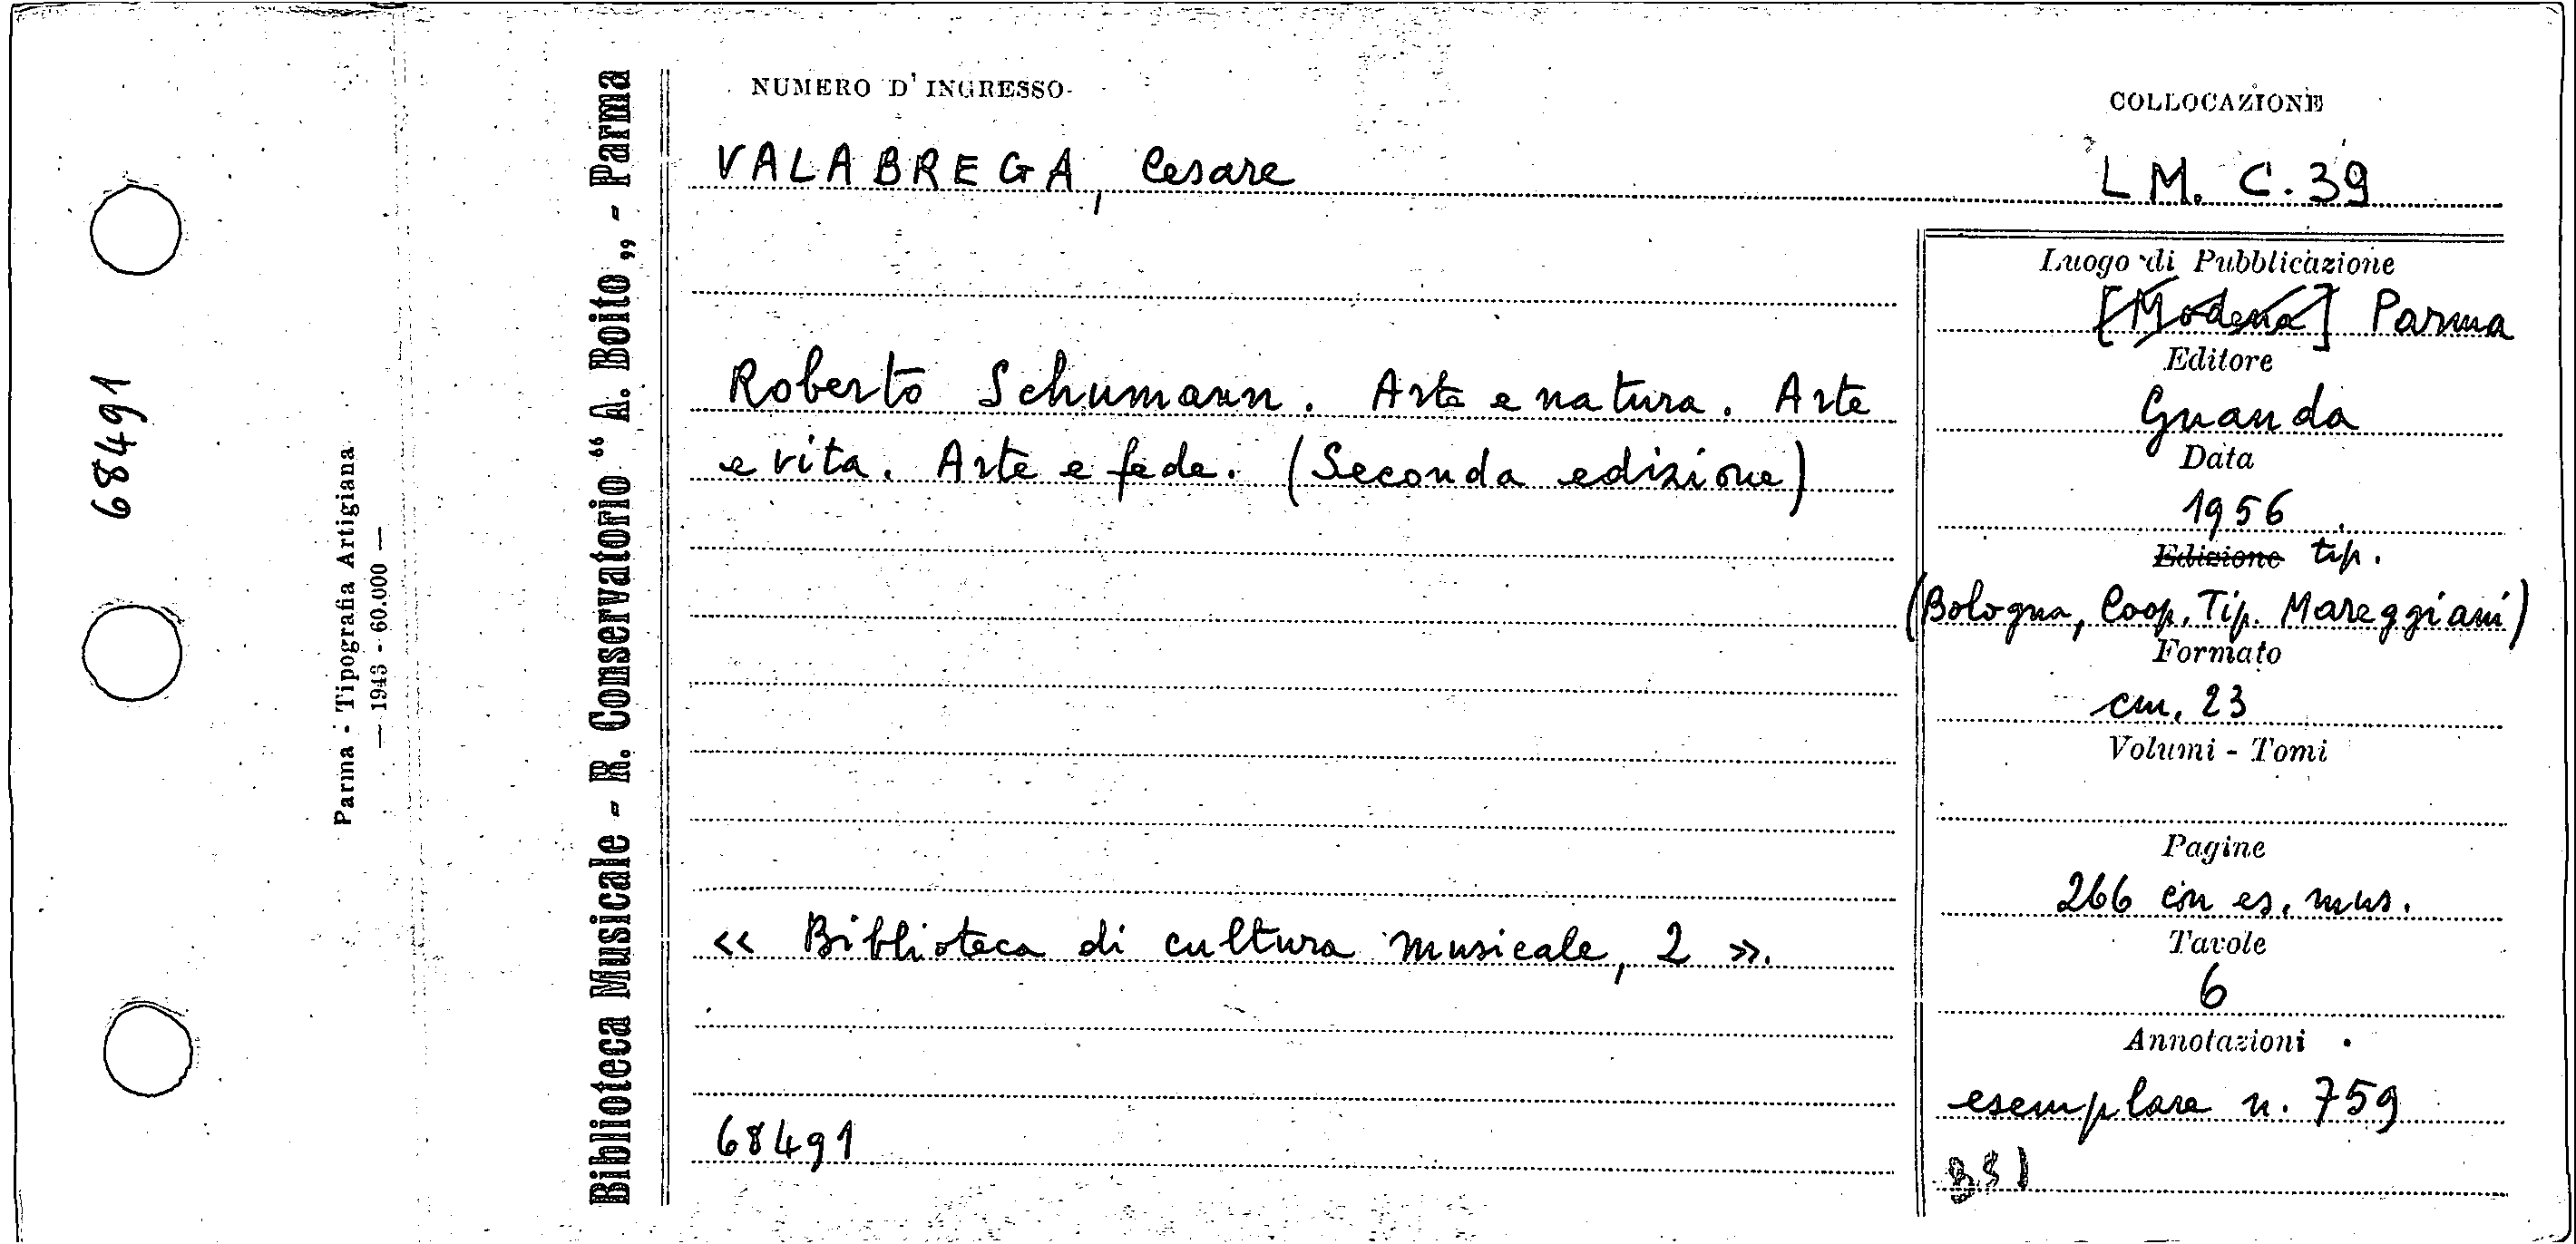 68491
Parma - Tipografia Artigiana
— 1943 - 60.000 —
Biblioteca Musicale - R. Conservatorio “ A. Boito „ - Parma
NUMERO D' INGRESSO
COLLOCAZIONE
VALABREGA, Cesare
L M. C. 39
Roberto Schumann. Arte e natura. Arte
e vita. Arte e fede. (Seconda edizione)
« Biblioteca di cultura musicale, 2 ».
68491
Luogo di Pubblicazione
[Modena] Parma
Editore
Guanda
Data
1956
Edizione tip.
(Bologna, Coop. Tip. Mareggiani)
Formato
cm. 23
Volumi - Tomi
Pagine
266 con es. mus.
Tavole
6
Annotazioni
esemplare n. 759